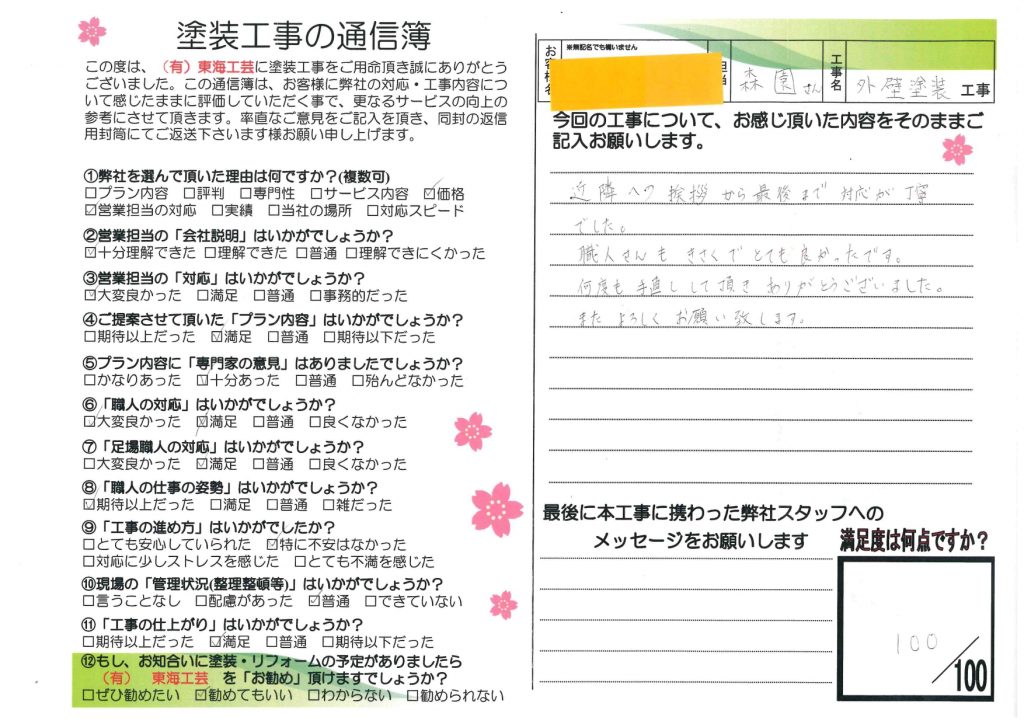 塗装工事の通信簿
この度は、（有）東海工芸に塗装工事をご用命頂き誠にありがとう
ございました。この通信簿は、お客様に弊社の対応・工事内容に
ついて感じたままに評価していただく事で、更なるサービスの向上の
参考にさせて頂きます。率直なご意見をご記入を頂き、同封の返信
用封筒にてご返送下さいます様お願い申し上げます。
①弊社を選んで頂いた理由は何ですか？(複数可)
□プラン内容 □評判 □専門性 □サービス内容 ☑価格
☑営業担当の対応 □実績 □当社の場所 □対応スピード
②営業担当の「会社説明」はいかがでしょうか？
☑十分理解できた □理解できた □普通 □理解できにくかった
③営業担当の「対応」はいかがでしょうか？
☑大変良かった □満足 □普通 □事務的だった
④ご提案させて頂いた「プラン内容」はいかがでしょうか？
□期待以上だった ☑満足 □普通 □期待以下だった
⑤プラン内容に「専門家の意見」はありましたでしょうか？
□かなりあった ☑十分あった □普通 □殆んどなかった
⑥「職人の対応」はいかがでしょうか？
☑大変良かった ☑満足 □普通 □良くなかった
⑦「足場職人の対応」はいかがでしょうか？
□大変良かった ☑満足 □普通 □良くなかった
⑧「職人の仕事の姿勢」はいかがでしょうか？
☑期待以上だった □満足 □普通 □雑だった
⑨「工事の進め方」はいかがでしたか？
□とても安心していられた ☑特に不安はなかった
□対応に少しストレスを感じた □とても不満を感じた
⑩現場の「管理状況(整理整頓等)」はいかがでしょうか？
□言うことなし □配慮があった ☑普通 □できていない
⑪「工事の仕上がり」はいかがでしょうか？
□期待以上だった ☑満足 □普通 □期待以下だった
⑫もし、お知合いに塗装・リフォームの予定がありましたら
（有） 東海工芸 を「お勧め」頂けますでしょうか？
□ぜひ勧めたい ☑勧めてもいい □わからない □勧められない
お客様名 ※無記名でも構いません 担当 森園さん 工事名 外壁塗装 工事
今回の工事について、お感じ頂いた内容をそのままご
記入お願いします。
近隣への挨拶から最後まで対応が丁寧
でした。
職人さんもきさくでとても良かったです。
何度も手直しして頂きありがとうございました。
またよろしくお願い致します。
最後に本工事に携わった弊社スタッフへの
メッセージをお願いします
満足度は何点ですか？
100/100